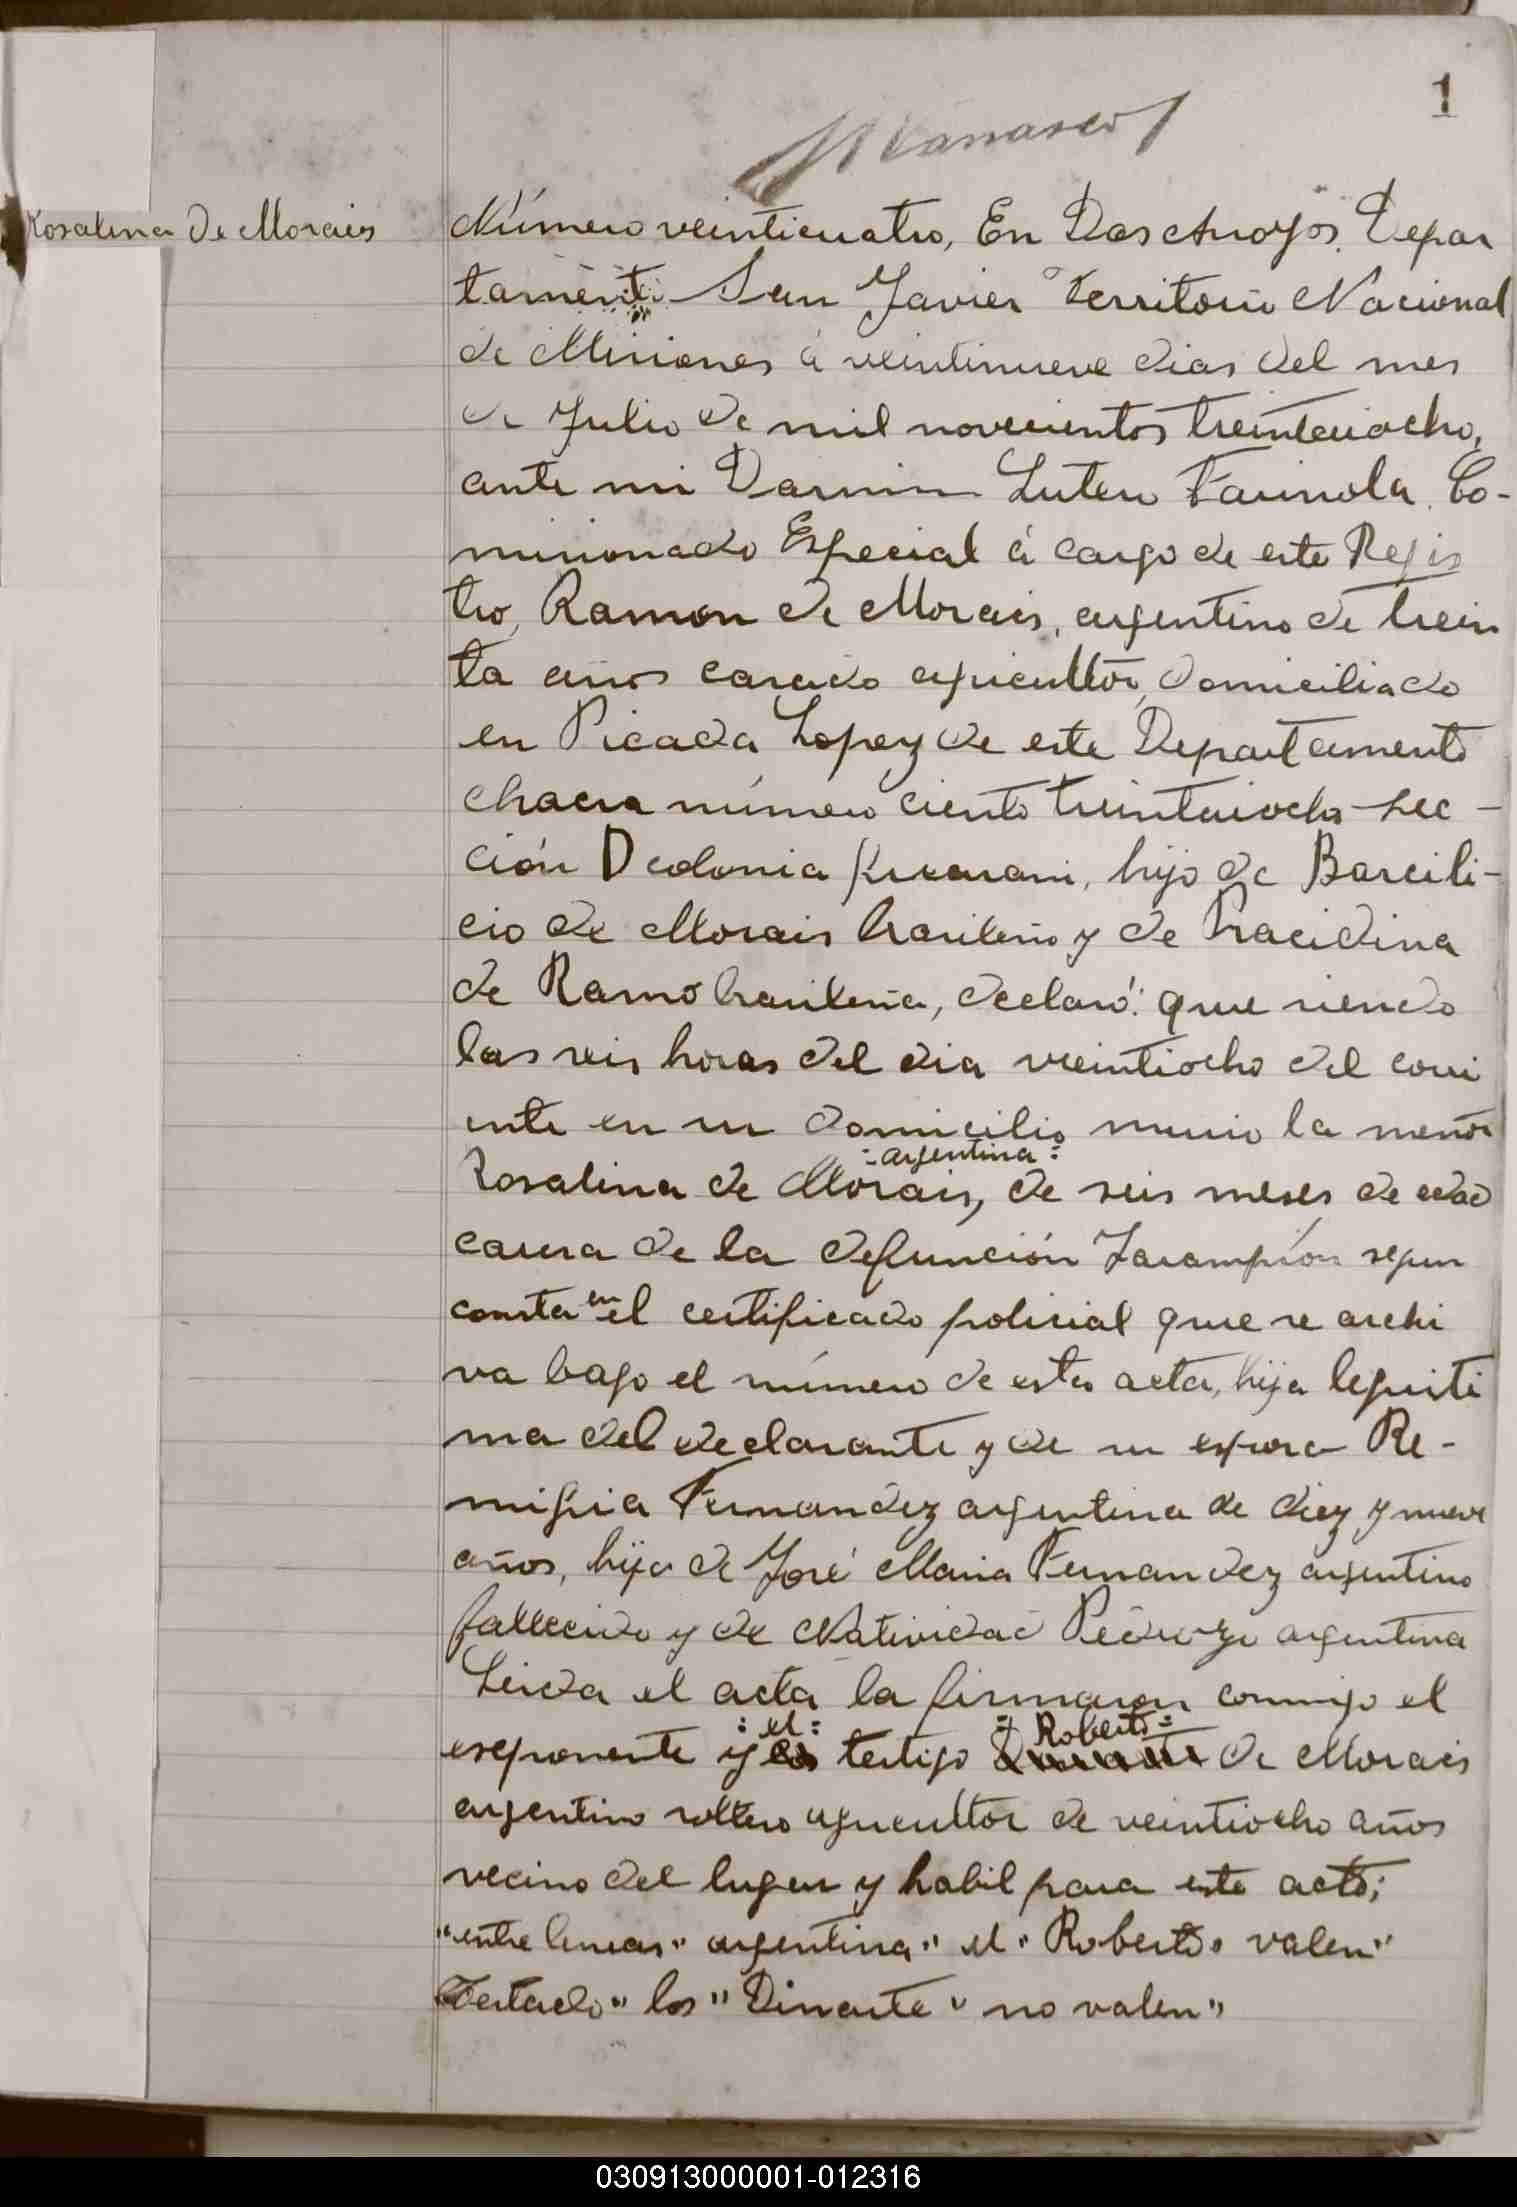 1
Rosalina De Morais
Número veinticuatro, En Dos Arroyos, Depar
tamento San Javier Territorio Nacional
de Misiones á veintinueve dias del mes
de Julio de mil novecientos treintaiocho,
ante mi Darwin Lutero Farinola, Co-
misionado Especial á cargo de este Regis
tro, Ramon de Morais, argentino de trein
ta años casado agricultor, domiciliado
en Picada Lopez de este Departamento
chacra número ciento treintaiocho sec-
ción D colonia, hijo de Barcili-
cio de Morais brasileño y de Pracidina
de Ramo brasileña, declaró: que siendo
las seis horas del dia veintiocho del corri
ente en su domicilio murio la menor
:argentina:
Rosalina de Morais, de seis meses de edad
causa de la defunción Sarampión segun
consta en el certificado policial que se archi
va bajo el número de esta acta, hija legiti
ma del declarante y de su esposa Re-
migia Fernandez argentina de diez y nueve
años, hija de José Maria Fernandez argentino
fallecido y de Natividad Pedrozo argentina
Leida el acta la firmaron conmigo el
:el: Roberto
exponente y los testigo Dinarte de Morais
argentino soltero agricultor de veintiocho años
vecino del lugar y habil para este acto;
"entre lineas" argentina" el" Roberto" valen"
Testado" los" Dinarte" no valen"
030913000001-012316